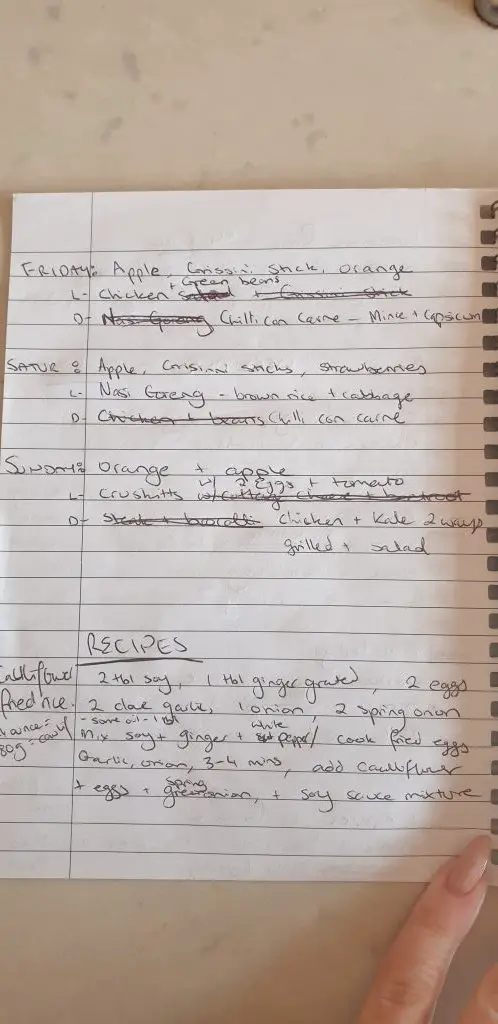 FRIDAY: Apple, Grissini stick, orange
+ Green beans
L- Chicken salad + Grissini stick
D- Nasi Goreng Chilli con carne - Mince + Capsicum
SATUR: Apple, Grissini sticks, strawberries
L- Nasi Goreng - brown rice + cabbage
D- Chicken + beans Chilli con carne
SUNDAY: Orange + apple
w/ 2 eggs + tomato
L- Cruskitts w/ cottage cheese + beetroot
D- Steak + brocolli Chicken + Kale 2 ways
grilled + salad
RECIPES
Cauliflower 2 tbl soy, 1 tbl ginger grated, 2 eggs
fried rice. 2 clove garlic, 1 onion, 2 spring onion
- some oil - 1 tbl white
Mix soy + ginger + pepper / cook fried eggs
80g = cauli
Garlic, onion, 3-4 mins, add cauliflower
spring
+ eggs + green onion, + soy sauce mixture